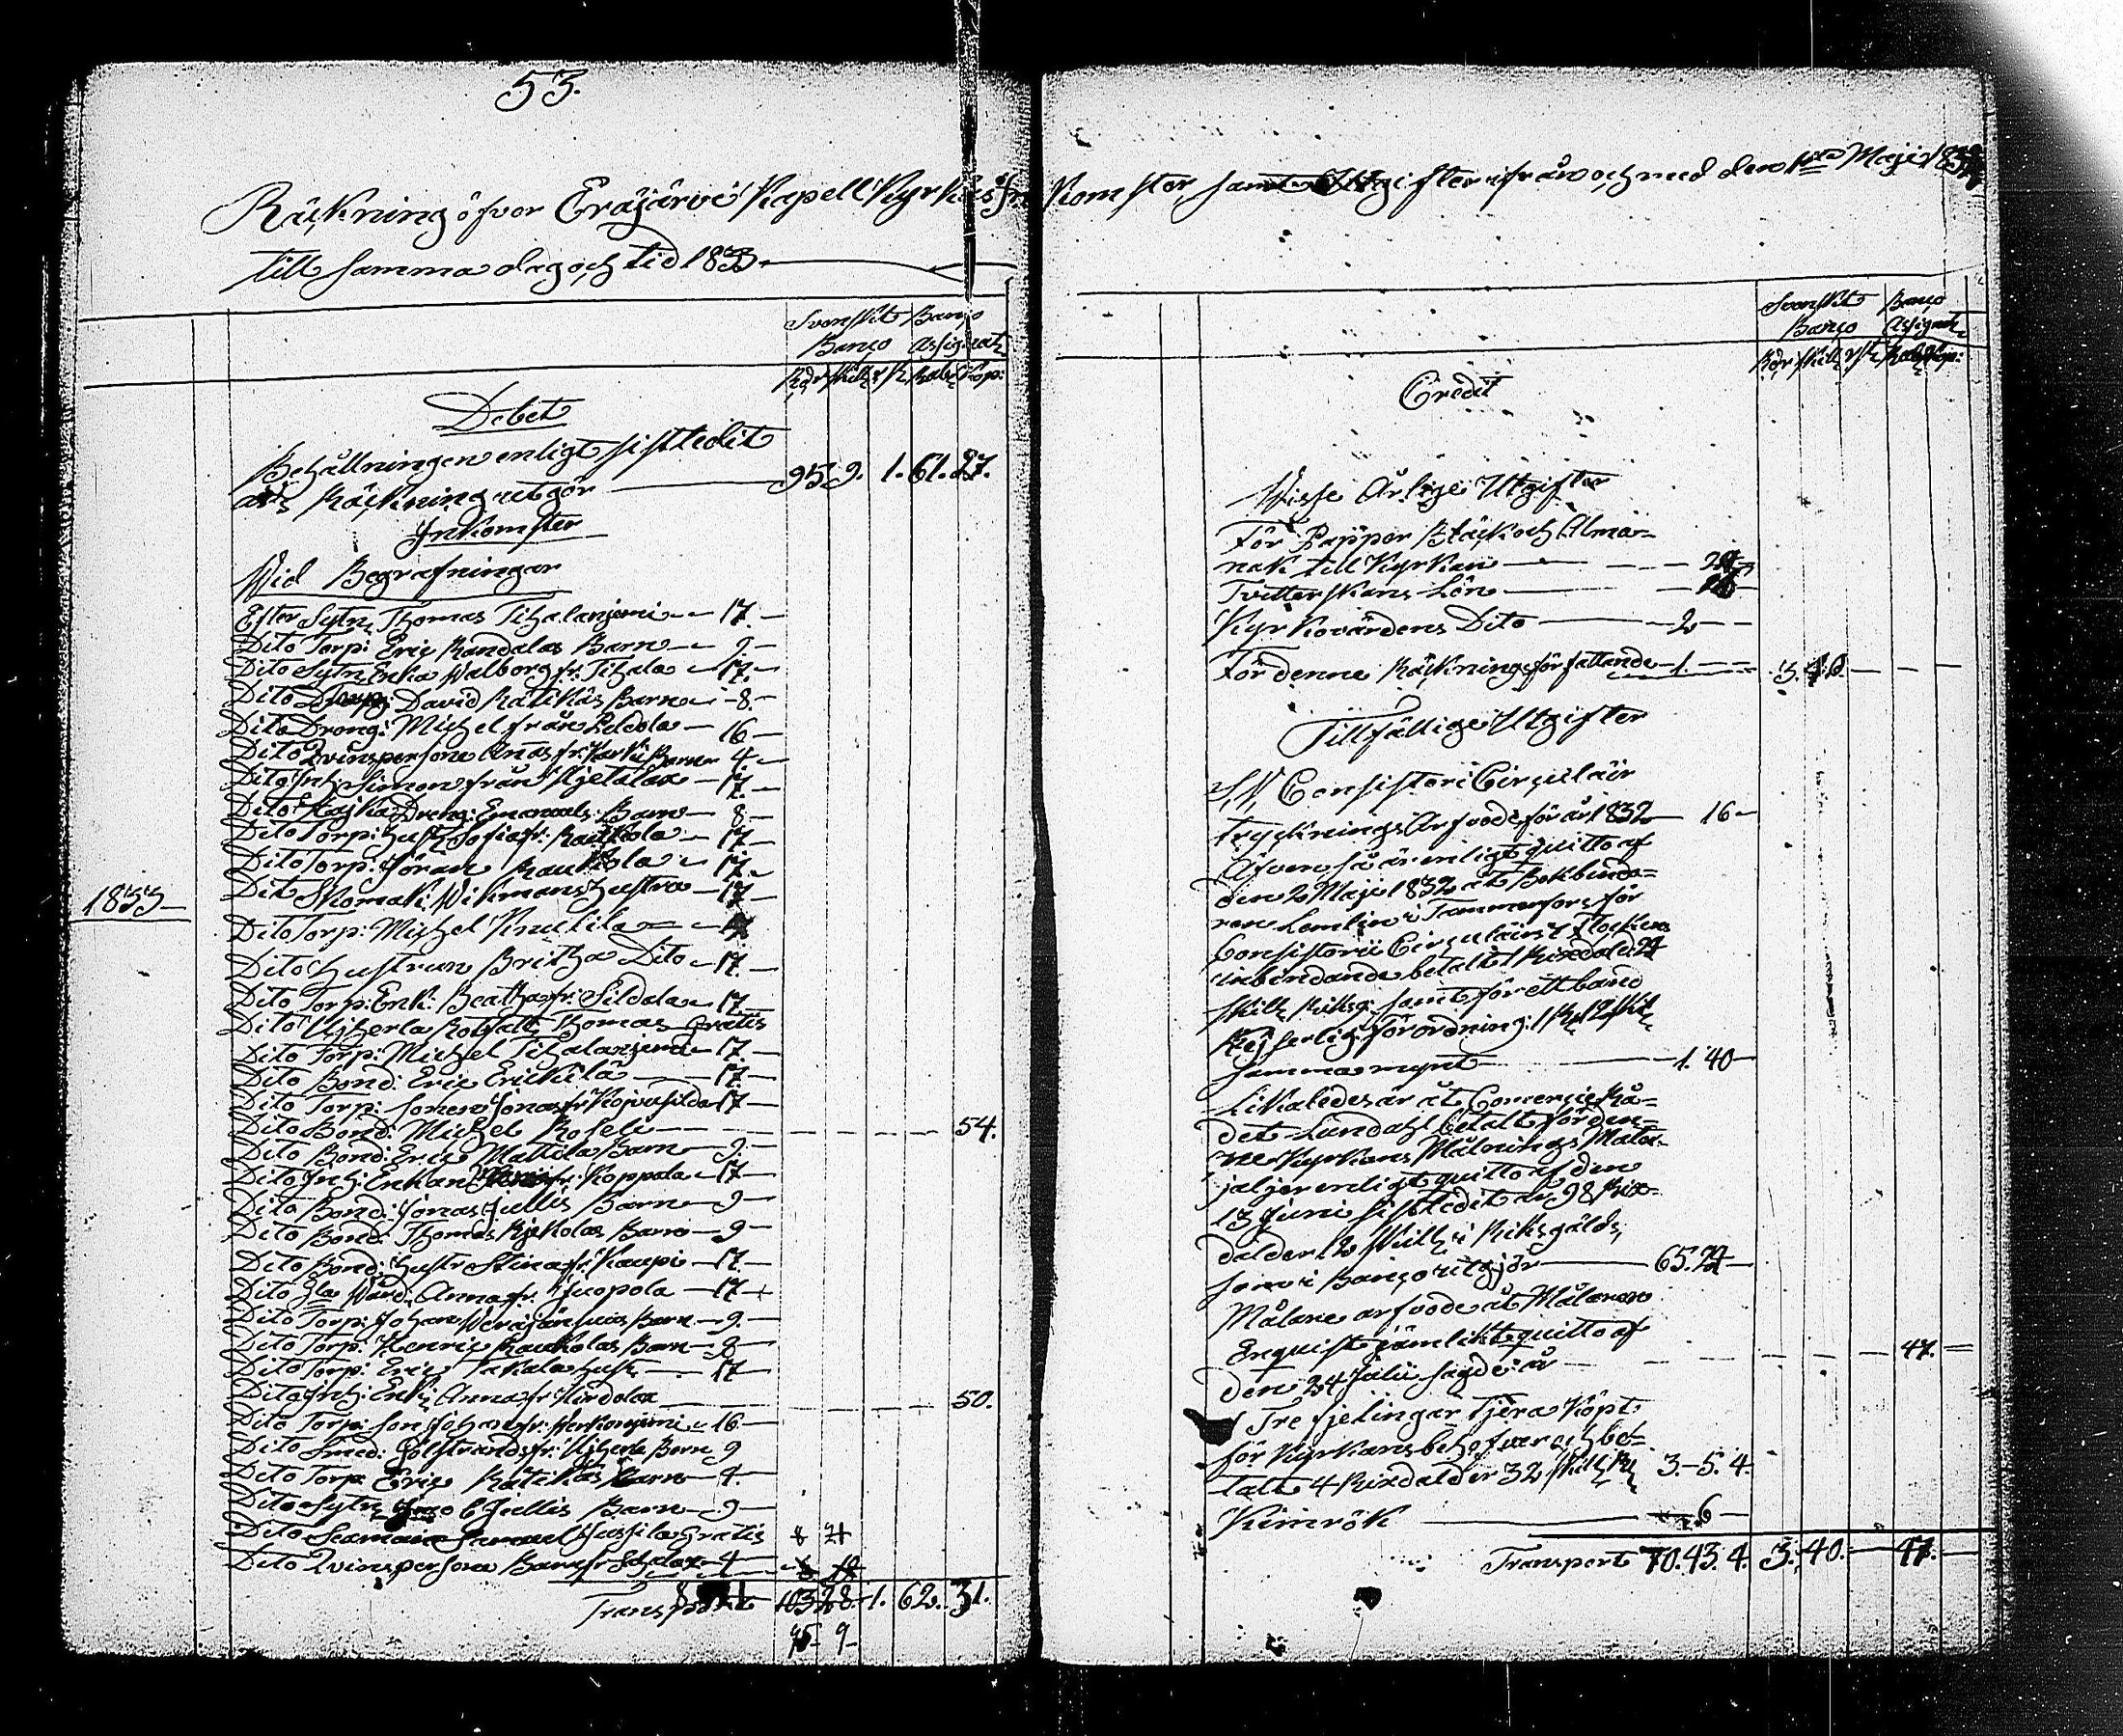 53.
Räkning öfver Eräjärvi Kapell Kyrkas Inkomster samt Utgifter ifrån och med den 1sta Maji 1832
till samma dag och tid 1833.
Svenskt Banco
Banco Assignat
Rdr Skill: rst. Rubl. Kop:
Debet
Behållningen enligt sistledit
års Räkning utgör 95 9. 1. 61. 27.
Inkomster
Wid Begrafningar
Efter Sytn Thomas Tihalanjemi 17.
Dito Torp: Eric Randalas Barn 9.
Dito Sytn Enka Walborg fr: Tihala 17.
Dito David Rätikäs Barn 8.
Dito Dreng: Michel från Peldola 16
Dito Qvinspersone Annas fr: Barn 4
Dito Inh: Simon från 17.
Dito Dreng: Emanuels Barn 8
Dito Torp: Hust: Sofia fr: Raukola 17
Dito Torp: Göran Raukola 17.
Dito Skomak: Wikmans hustru 17
1833
Dito Torp: Michel Knutila 17
Dito hustrun Britha Dito 17.
Dito Torp: Enk: Beatha fr: Sildala 17.
Dito Thomas gratis
Dito Torp: Michel Tihalanjemi 17.
Dito Bond: Eric Erickilä 17.
Dito Torp: Sonen Jonas fr: 17
Dito Bond: Michel Roseli 54.
Dito Bond: Eric Mattila Barn 9.
Dito Inh: Enkan fr: Koppala 17
Dito Bond: Jonas Jullis Barn 9
Dito Bond: Thomas Barn 9
Dito Bond: hustr Stina fr: Kaupi 17.
Dito Anna fr: 17
Dito Torp: Johan Barn 9.
Dito Torp: Henric Raukolas Barn 8
Dito Torp: Eric Takala hust: 17
Dito Inh: Enk: Anna fr: 50.
Dito Torp: Son Johan fr: 16
Dito Smed: fr: Barn 9
Dito Torp: Eric Rätikäs Barn 4.
Dito Sytn Jacob Jullis Barn 9
Dito Samuel gratis
Dito Qvinspersone Barn fr: 4
Transport 103 28. 1. 62. 31.
95 9
Svenskt Banco
Banco Assignat
Rdr Skill: rst Rubl. Kop:
Credit
Wisse Årlige Utgifter
För Papper Bläck och Alma-
nak till Kyrkan 24
Tvätterskans Lön
Kyrkovärdens Dito 2
För denne Räknings författande 1. 3. 40.
Tillfällige Utgifter
Consistorii Circulair
trycknings Arfvode för år 1832 16
Äfven så är enligt quitto af
den 2 Maji 1832 åt Bokbinda-
ren Lomlin i Tammerfors för
Consistorii Circulairs
inbindande betalt 1 Rixdal 24
Skill: Riksg: samt för ett band
Kejserlig: förordning: 1 Rd Skil
samma mynt 1. 40
Likaledes är åt Comercie Rå-
det Lundahl betalt för den-
ne Kyrkans Målnings Mate-
jaljer enligt quitto af den
13 Juni sistledit år 98 Rix-
dalder 12 Skill: i Riksgälds,
som i Banco utgjör 65. 24
Målare arfvode åt Målaren
Enquist jämlikt quitto af
den 24 Julii sagde år 47.
Tre fjelingar Tjera köpt
för Kyrkans behof och be-
talt 4 Rixdalder 32 Skill: Rg 3. 5. 4.
Kimrök 6
Transport 70. 43. 4. 3. 40. 47.